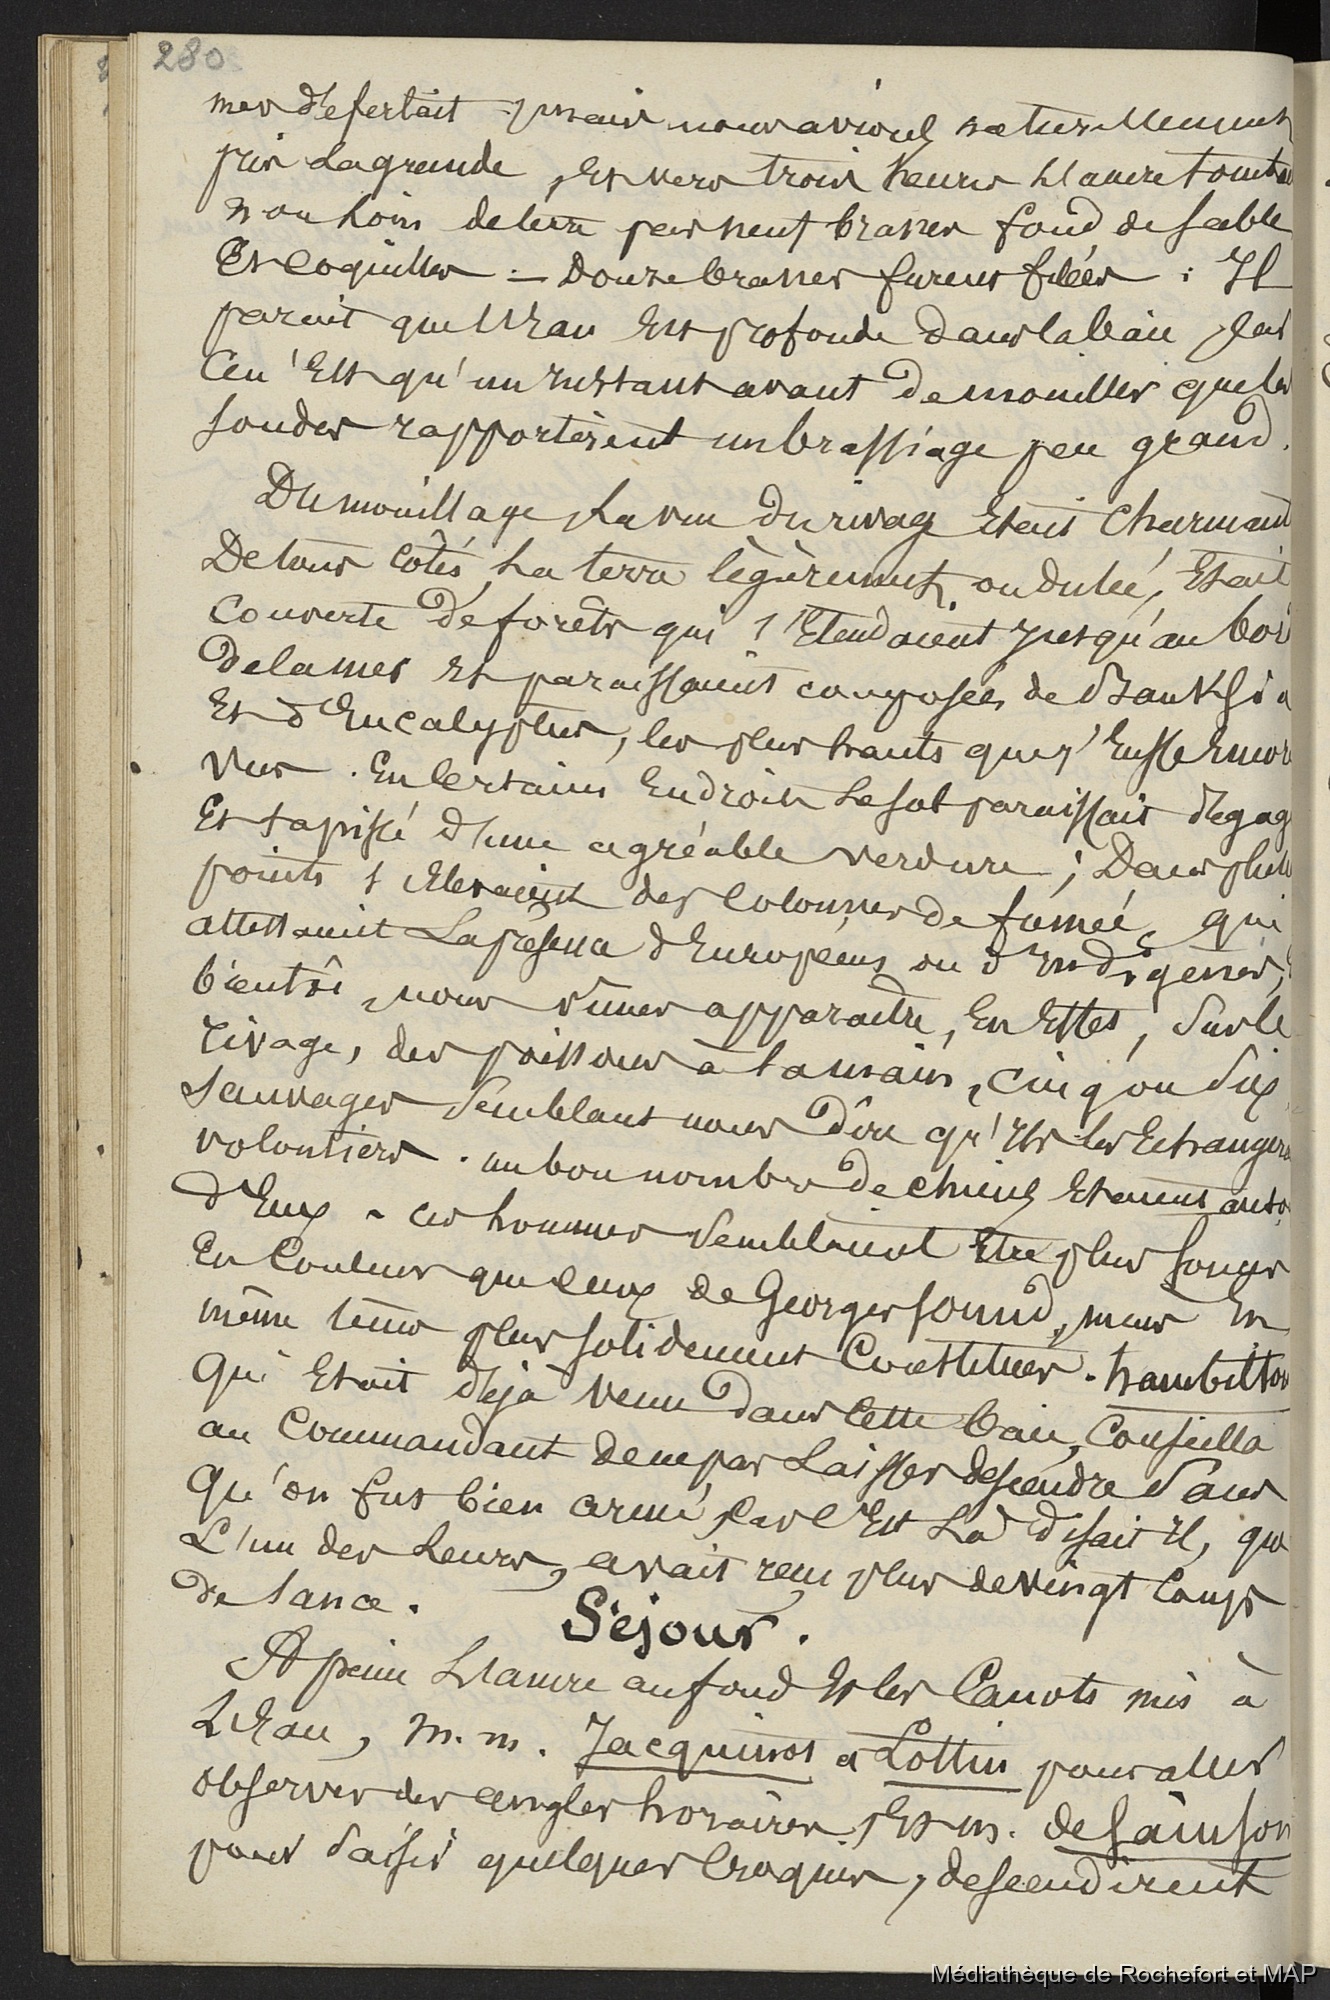 280
mer d'efertait mais nous avions naturellement
pris la grande, et vers trois heures l'ancre tomba
non loin de terre par neuf brasses fond de sable
Et coquilles :— Douze brasses furent filées : Il
parait que l'Eau Est profonde dans la baie par
Ce n'Est qu'un instant avant De mouiller que les
sondes rapportèrent un brassiage peu grand.
Du mouillage, la vue du rivage Etait Charmant
De tous côtés, la terre légèrement onDulée, Etait
couverte De forêts qui s'EtenDaient jusqu'au bord
De la mer Et paraissaient composées de Banksia
Et d'Eucalyptus, les plus hauts que j'Eusse Encor
vus. En Certains EnDroits le sol paraissait Dégag
Et tapissé D'une agréable verdure ; Dans plusi
points s'Elevaient des Colonnes de fumée, qui
attestaient La présence d'Européens ou d'InDigènes,
bientôt, nous vimes apparaitre, En Effet, sur le
rivage, des poissons à la main, cinq ou six
Sauvages Semblant nous Dire qu'Ils les Echangera
volontiers. un bon nombre De chiens Etaient auto
D'Eux - ces hommes Semblaient Etre plus foncés
En Couleur que Ceux de Georges sound, mais En
même tems plus solidement Constitués. hambilton
Qui Etait Déjà venu Dans Cette baie, Conseilla
au CommanDant De ne pas Laisser descendre sans
Qu'on fut bien armé, car C'Est Là Disait Il, que
L'un des Leurs, avait reçu plus de vingt Coups
De lance.
Séjour.
A peine L'ancre au fond Et les Canots mis à
L'Eau, m.m. Jacquinot et Lottin pour aller
observer des angles horaires, Et m. de Sainson
pour saisir quelques Croquis, descendirent
Médiathèque de Rochefort et MAP